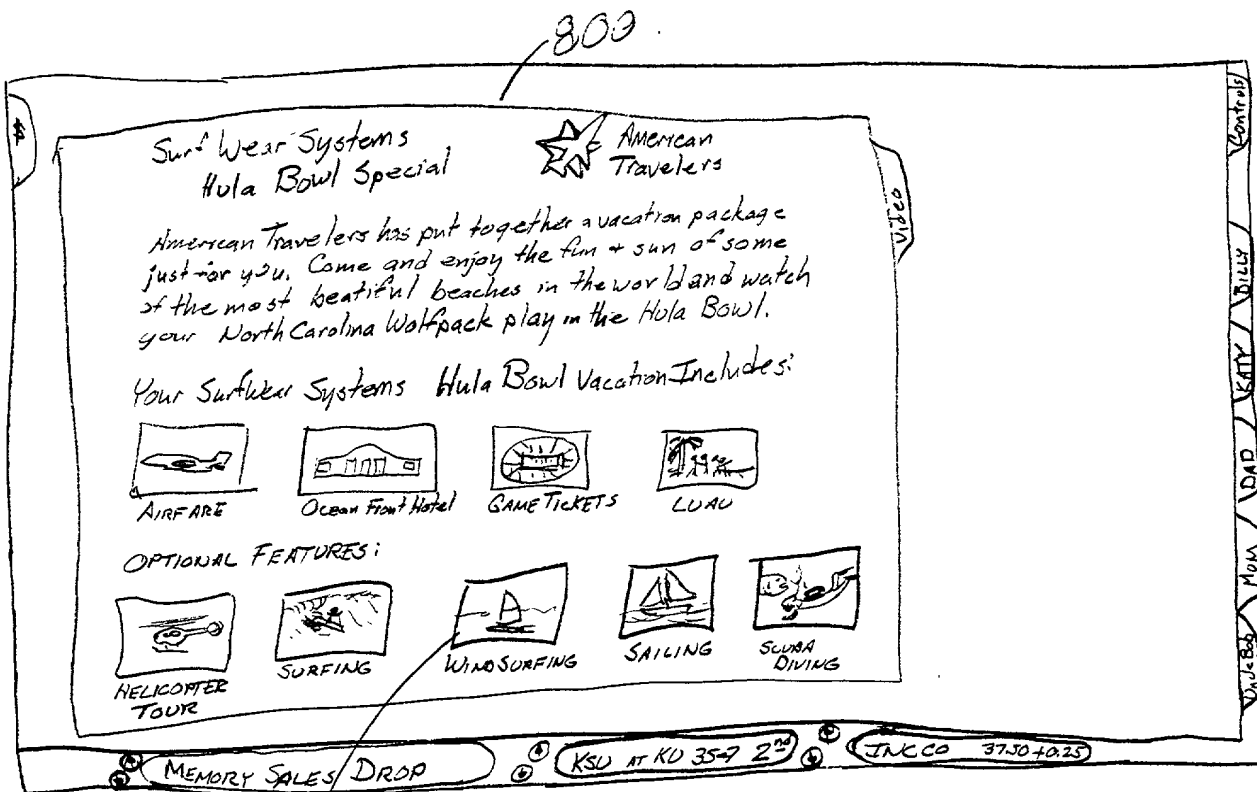 800
Surf Wear Systems
Hula Bowl Special
American
Travelers
American Travelers has put together a vacation package
just for you. Come and enjoy the fun + sun of some
of the most beatiful beaches in the world and watch
your North Carolina Wolfpack play in the Hula Bowl.
Your SurfWear Systems Hula Bowl Vacation Includes:
AIRFARE
Ocean Front Hotel
GAME TICKETS
LUAU
OPTIONAL FEATURES:
HELICOPTER
TOUR
SURFING
WINDSURFING
SAILING
SCUBA
DIVING
Video
Controls
DILLY
KATY
DAD
MOM
Uncle Bob
MEMORY SALES DROP
KSU AT KU 35-7 2nd
INCCO 37.50 +0.25